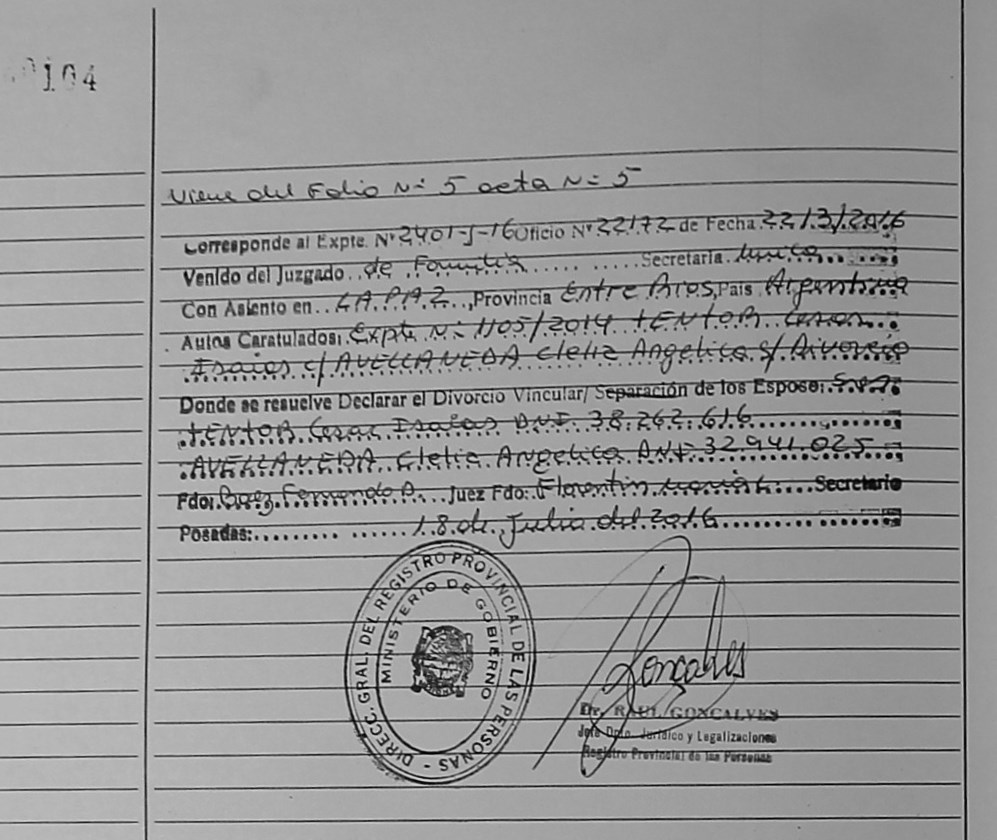 104
Viene del Folio N= 5 acta N= 5
Corresponde al Expte. Nº 2401-J-16 Oficio Nº 22172 de Fecha 22/3/2016
Venido del Juzgado de Familia Secretaria única
Con Asiento en LA PAZ, Provincia Entre Rios, País Argentina
Autos Caratulados: Expte N= 1105/2014 TENTOR Cesar
Isaias c/ AVELLANEDA Clelia Angelica s/ Divorcio
Donde se resuelve Declarar el Divorcio Vincular/ Separación de los Esposo:
TENTOR Cesar Isaias DNI 38.262.616
AVELLANEDA Clelia Angelica DNI 32.941.025
Fdo: Baez Fernando A. Juez Fdo: Florentin Secretario
Posadas: 18 de Julio del 2016
DIRECC. GRAL. DEL REGISTRO PROVINCIAL DE LAS PERSONAS -
MINISTERIO DE GOBIERNO
Gonçalves
Dr. RAUL GONCALVES
Jefe Dpto. Jurídico y Legalizaciones
Registro Provincial de las Personas